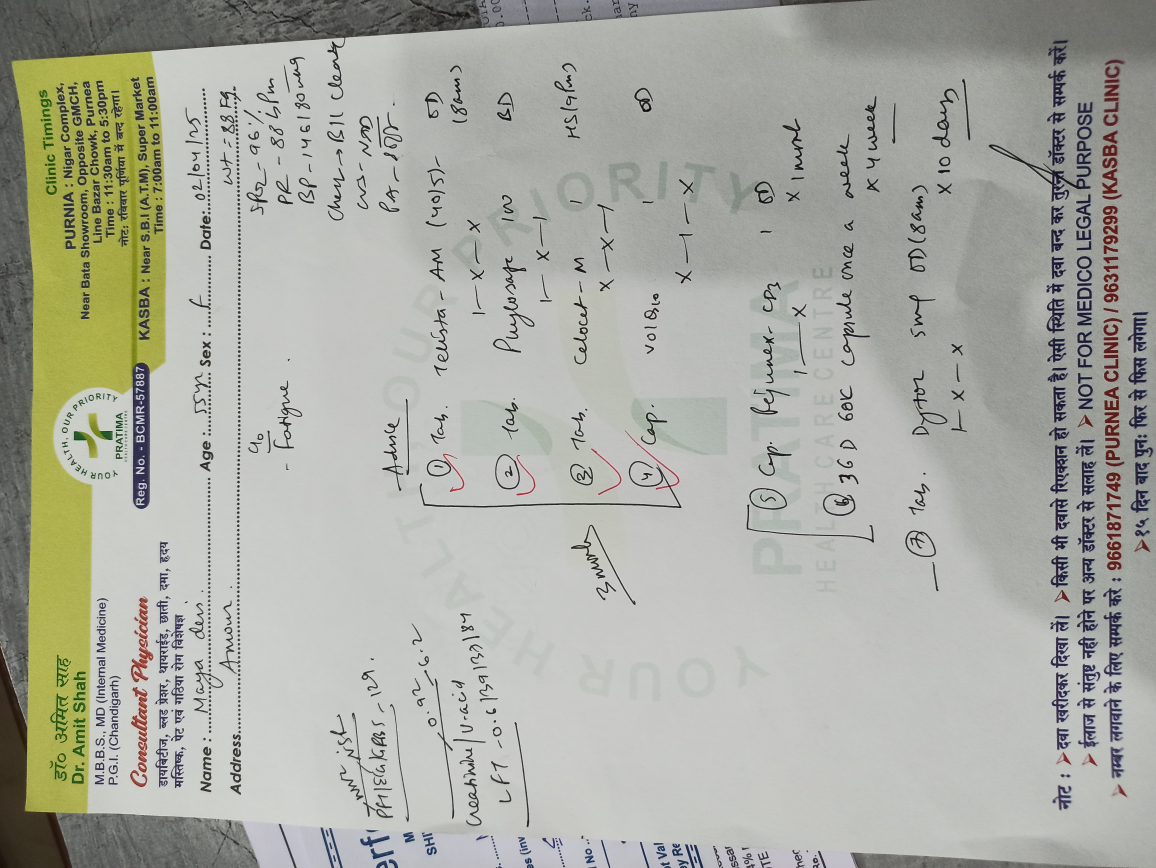 डॉ० अमित साह
Dr. Amit Shah
M.B.B.S., MD (Internal Medicine)
P.G.I. (Chandigarh)
Consultant Physician
डायबिटीज, ब्लड प्रेशर, थायराईड, छाती, दमा, हृदय
मस्तिष्क, पेट एवं गठिया रोग विशेषज्ञ
YOUR HEALTH, OUR PRIORITY
PRATIMA
Reg. No. - BCMR-57887
Clinic Timings
PURNIA : Nigar Complex,
Near Bata Showroom, Opposite GMCH,
Line Bazar Chowk, Purnea
Time : 11:30am to 5:30pm
नोट: रविवार पूर्णिया में बन्द रहेगा।
KASBA : Near S.B.I (A.T.M), Super Market
Time : 7:00am to 11:00am
Name : Maya devi Age : 55yr Sex : f Date: 02/04/25
Address Amour wt = 88 kg
c/o
- Fatigue .
SPO2 - 96%
PR - 88 bpm
BP - 146/80
Chest → B/L Clear
CVS - NAD
PA - soft.
RBS - 129.
Creatinine/U-acid
0.92 6.2
LFT - 0.6/39/37/184
Advise
① Tab. Telista - AM (40/5) - OD
1 - x - x (8am)
② Tab. 100 BD
1 - x - 1
③ Tab. - M 1 HS (9pm)
x - x - 1
④ Cap. 1 OD
x - 1 - x
3 month
⑤ Cap. Rejunex - CD3 1 OD
1 x x 1 month
⑥ 3G D 60K capsule once a week
x 4 week
⑦ Tab. Dytor 5mg OD (8am)
1 - x - x x 10 days
YOUR HEALTH OUR PRIORITY
PRATIMA
HEALTH CARE CENTRE
नोट : ➤दवा खरीदकर दिखा लें। ➤किसी भी दवासे रिएक्शन हो सकता है। ऐसी स्थिति में दवा बन्द कर तुरन्त डॉक्टर से सम्पर्क करें।
➤ ईलाज से संतुष्ट नही होने पर अन्य डॉक्टर से सलाह लें। ➤ NOT FOR MEDICO LEGAL PURPOSE
➤ नम्बर लगवाने के लिए सम्पर्क करे : 9661871749 (PURNEA CLINIC) / 9631179299 (KASBA CLINIC)
➤१५ दिन बाद पुनः फिर से फिस लगेगा।